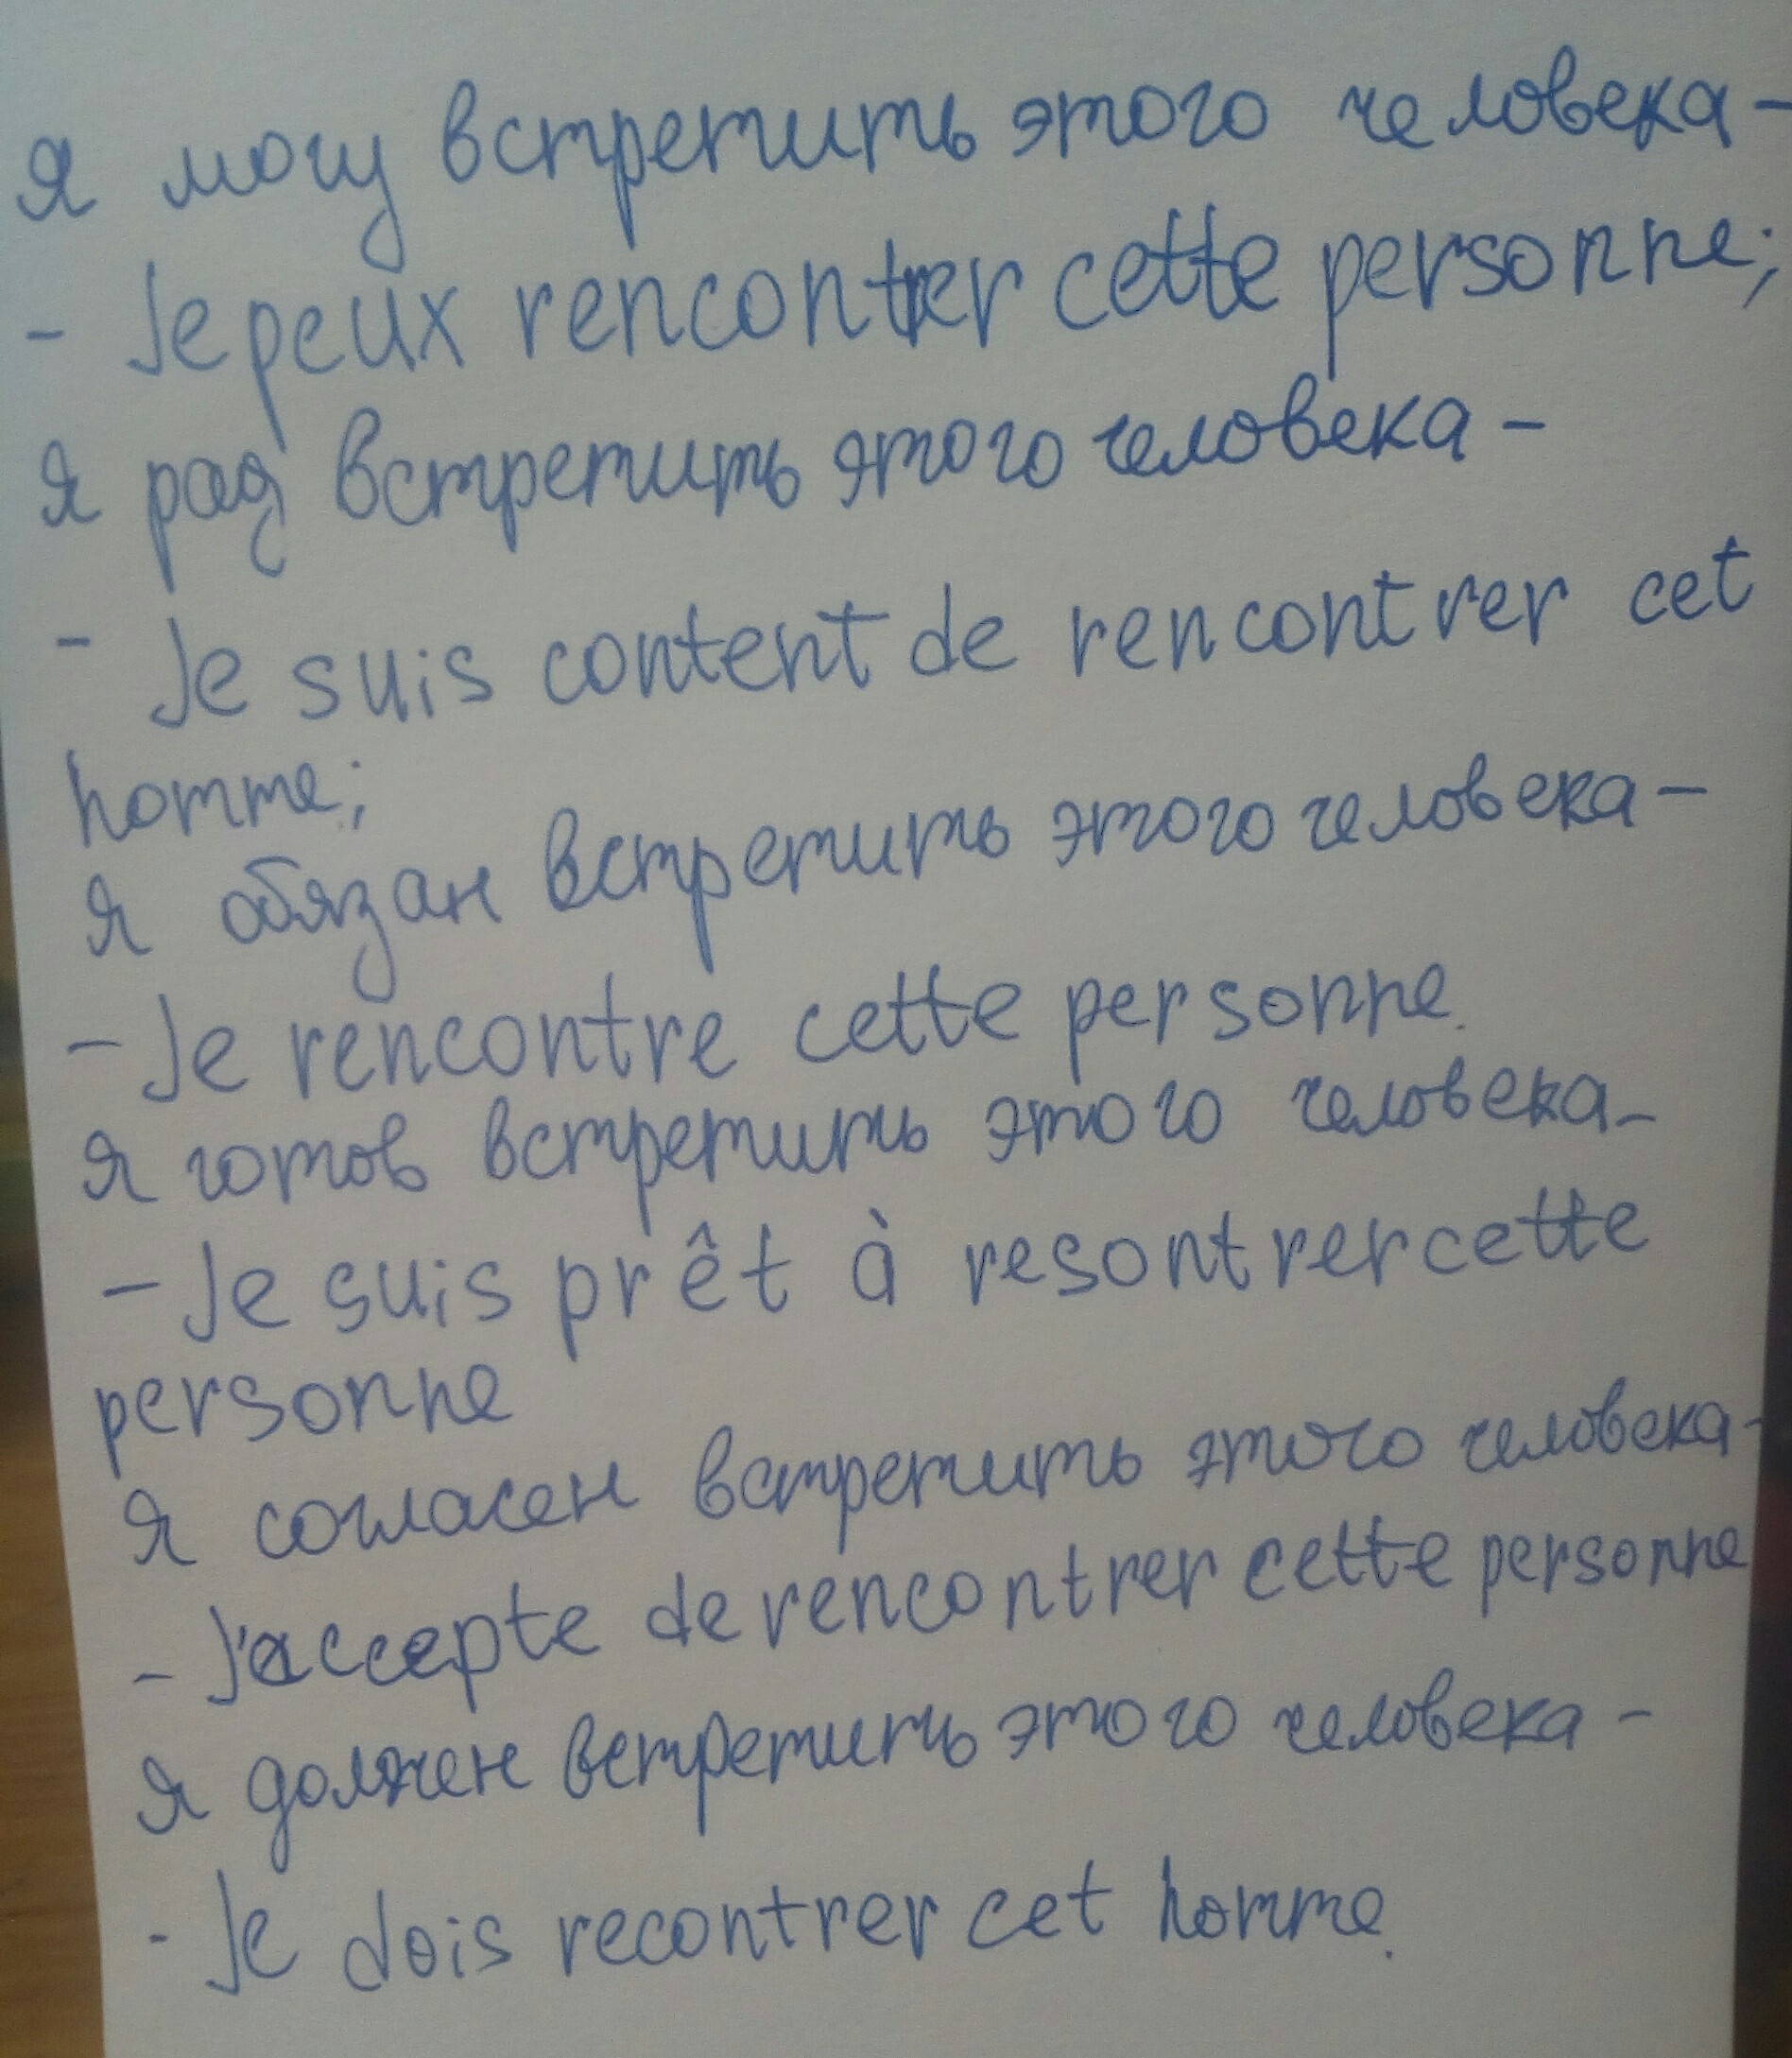 Я могу встретить этого человека -
- Je peux rencontrer cette personne;
Я рад встретить этого человека -
- Je suis content de rencontrer cet
homme;
Я обязан встретить этого человека -
- Je rencontre cette personne.
Я готов встретить этого человека -
- Je suis prêt à resontrer cette
personne
Я согласен встретить этого человека -
- J'accepte de rencontrer cette personne
Я должен встретить этого человека -
- Je dois recontrer cet homme.